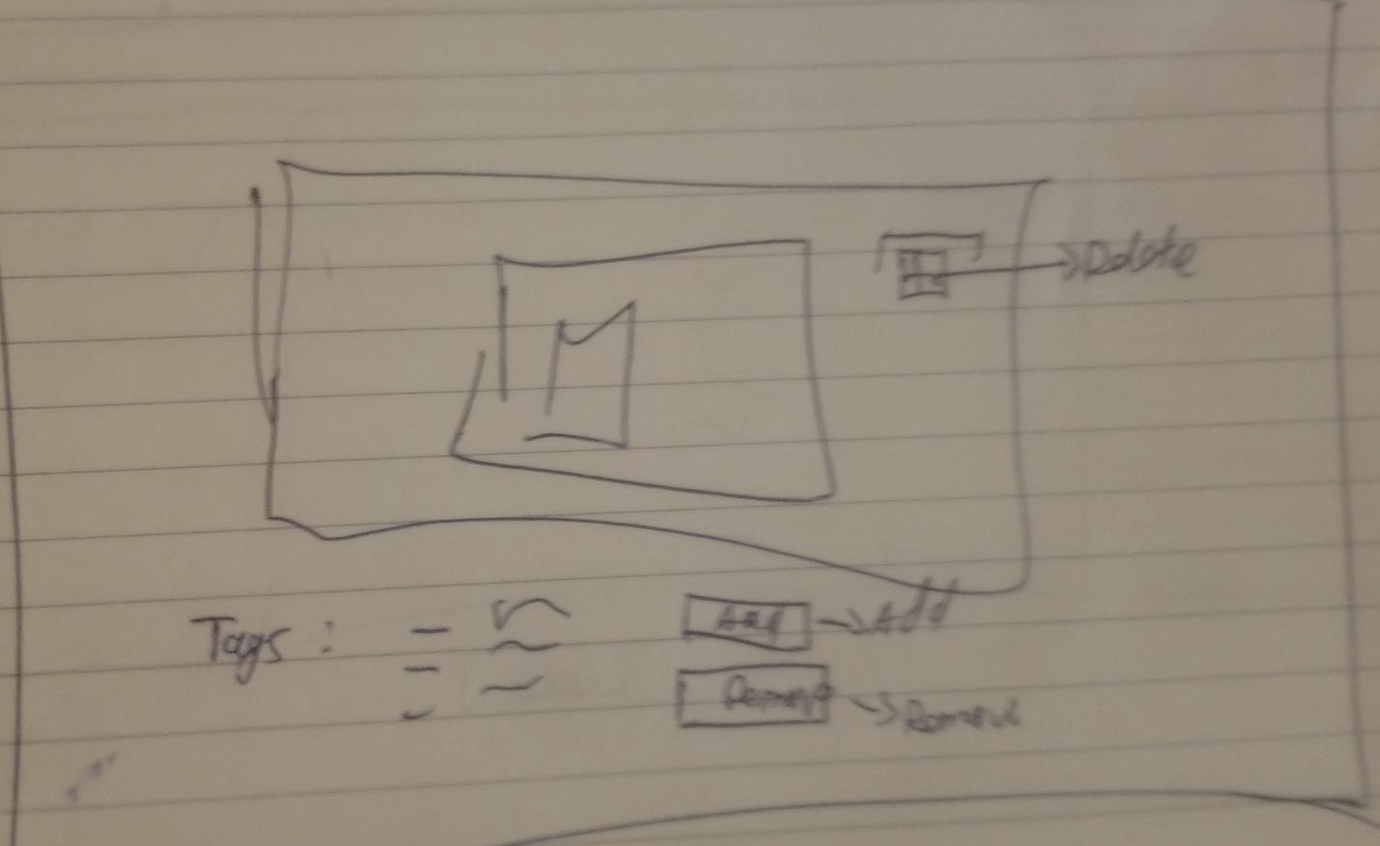 Delete
Tags :
Add → Add
Remove → Remove